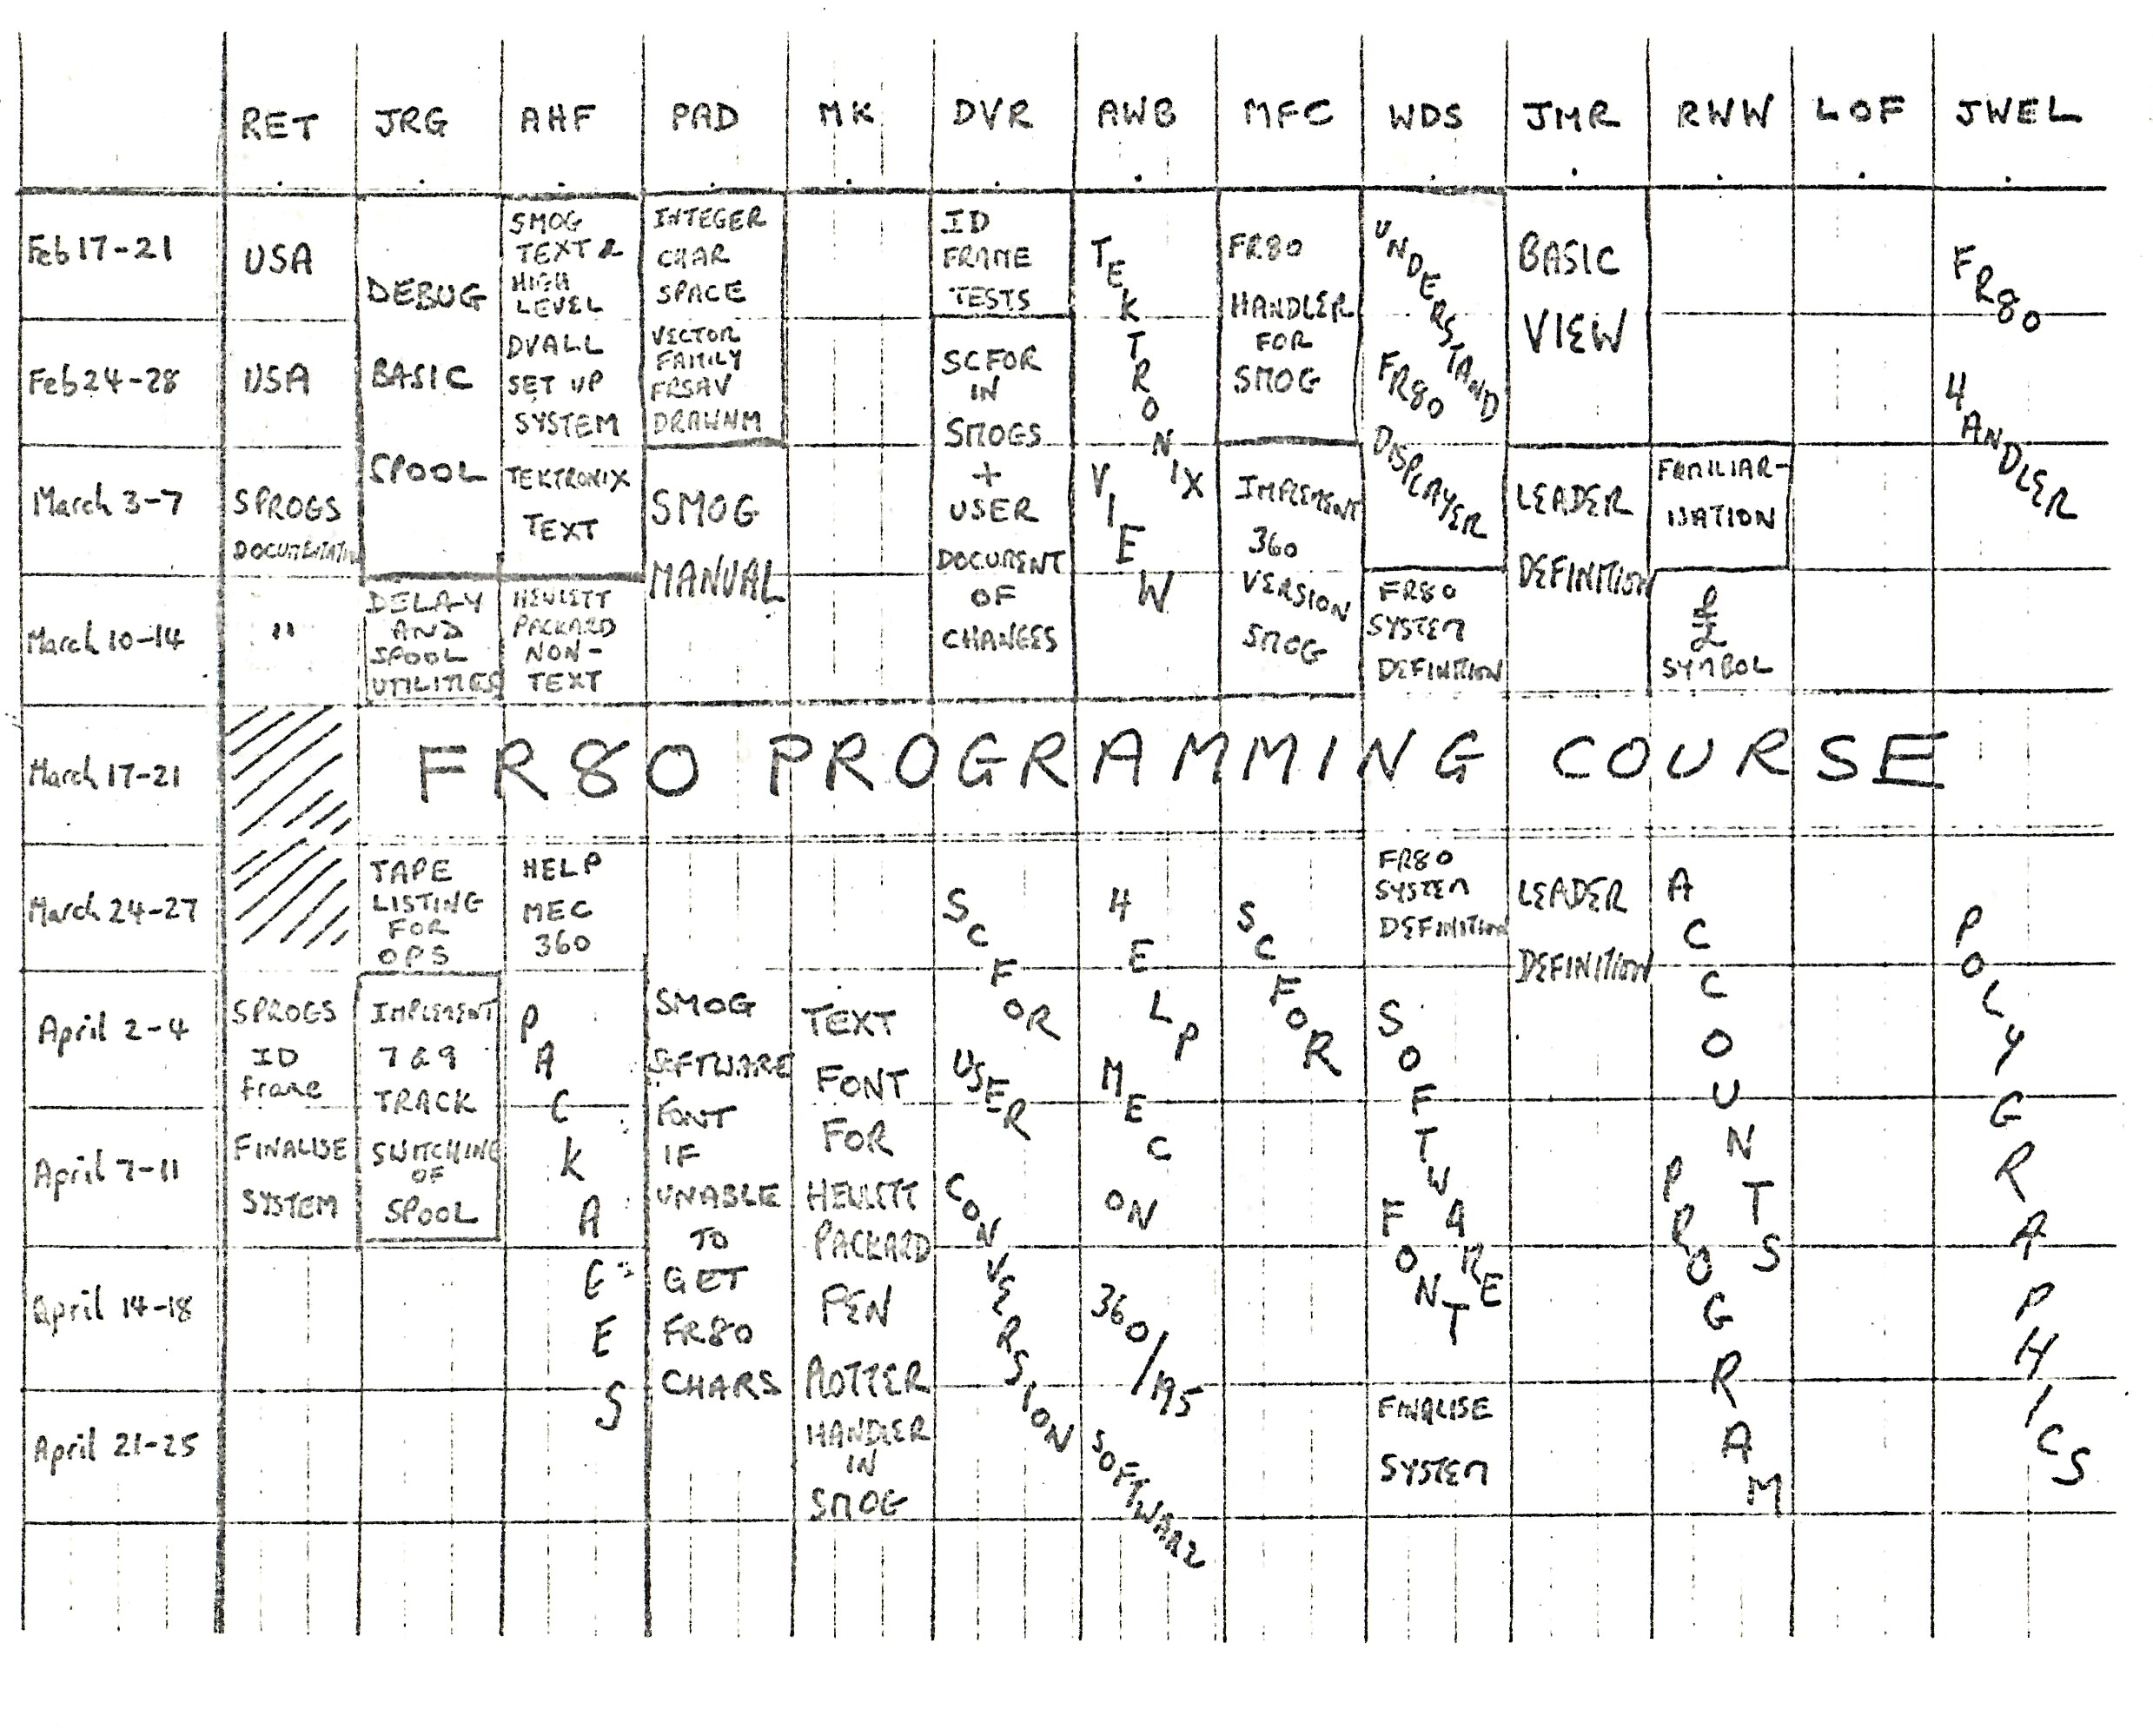 RET JRG AHF PAD MK DVR AWB MFC WDS JMR RWW LOF JWEL
Feb 17-21
Feb 24-28
March 3-7
March 10-14
March 17-21
March 24-27
April 2-4
April 7-11
April 14-18
April 21-25
USA
USA
SPROGS
DOCUMENTATION
"
SPROGS
ID
frame
FINALISE
SYSTEM
DEBUG
BASIC
SPOOL
DELAY
AND
SPOOL
UTILITIES
TAPE
LISTING
FOR
OPS
IMPLEMENT
7 & 9
TRACK
SWITCHING
OF
SPOOL
SMOG
TEXT &
HIGH
LEVEL
DVALL
SET UP
SYSTEM
TEKTRONIX
TEXT
HEWLETT
PACKARD
NON-
TEXT
HELP
MEC
360
PACKAGES
INTEGER
CHAR
SPACE
VECTOR
FAMILY
FRSAV
DRAWNM
SMOG
MANUAL
SMOG
SOFTWARE
FONT
IF
UNABLE
TO
GET
FR80
CHARS
TEXT
FONT
FOR
HEWLETT
PACKARD
PEN
PLOTTER
HANDLER
IN
SMOG
ID
FRAME
TESTS
SCFOR
IN
SMOGS
+
USER
DOCUMENT
OF
CHANGES
SCFOR
USER
CONVERSION
TEKTRONIX
VIEW
HELP
MEC
ON
360/195
SOFTWARE
FR80
HANDLER
FOR
SMOG
IMPLEMENT
360
VERSION
SMOG
SCFOR
UNDERSTAND
FR80
DISPLAYER
FR80
SYSTEM
DEFINITION
FR80
SYSTEM
DEFINITION
SOFTWARE
FONT
FINALISE
SYSTEM
BASIC
VIEW
LEADER
DEFINITION
LEADER
DEFINITION
FAMILIAR-
ISATION
£
SYMBOL
ACCOUNTS
PROGRAM
FR80
HANDLER
POLYGRAPHICS
FR80 PROGRAMMING COURSE